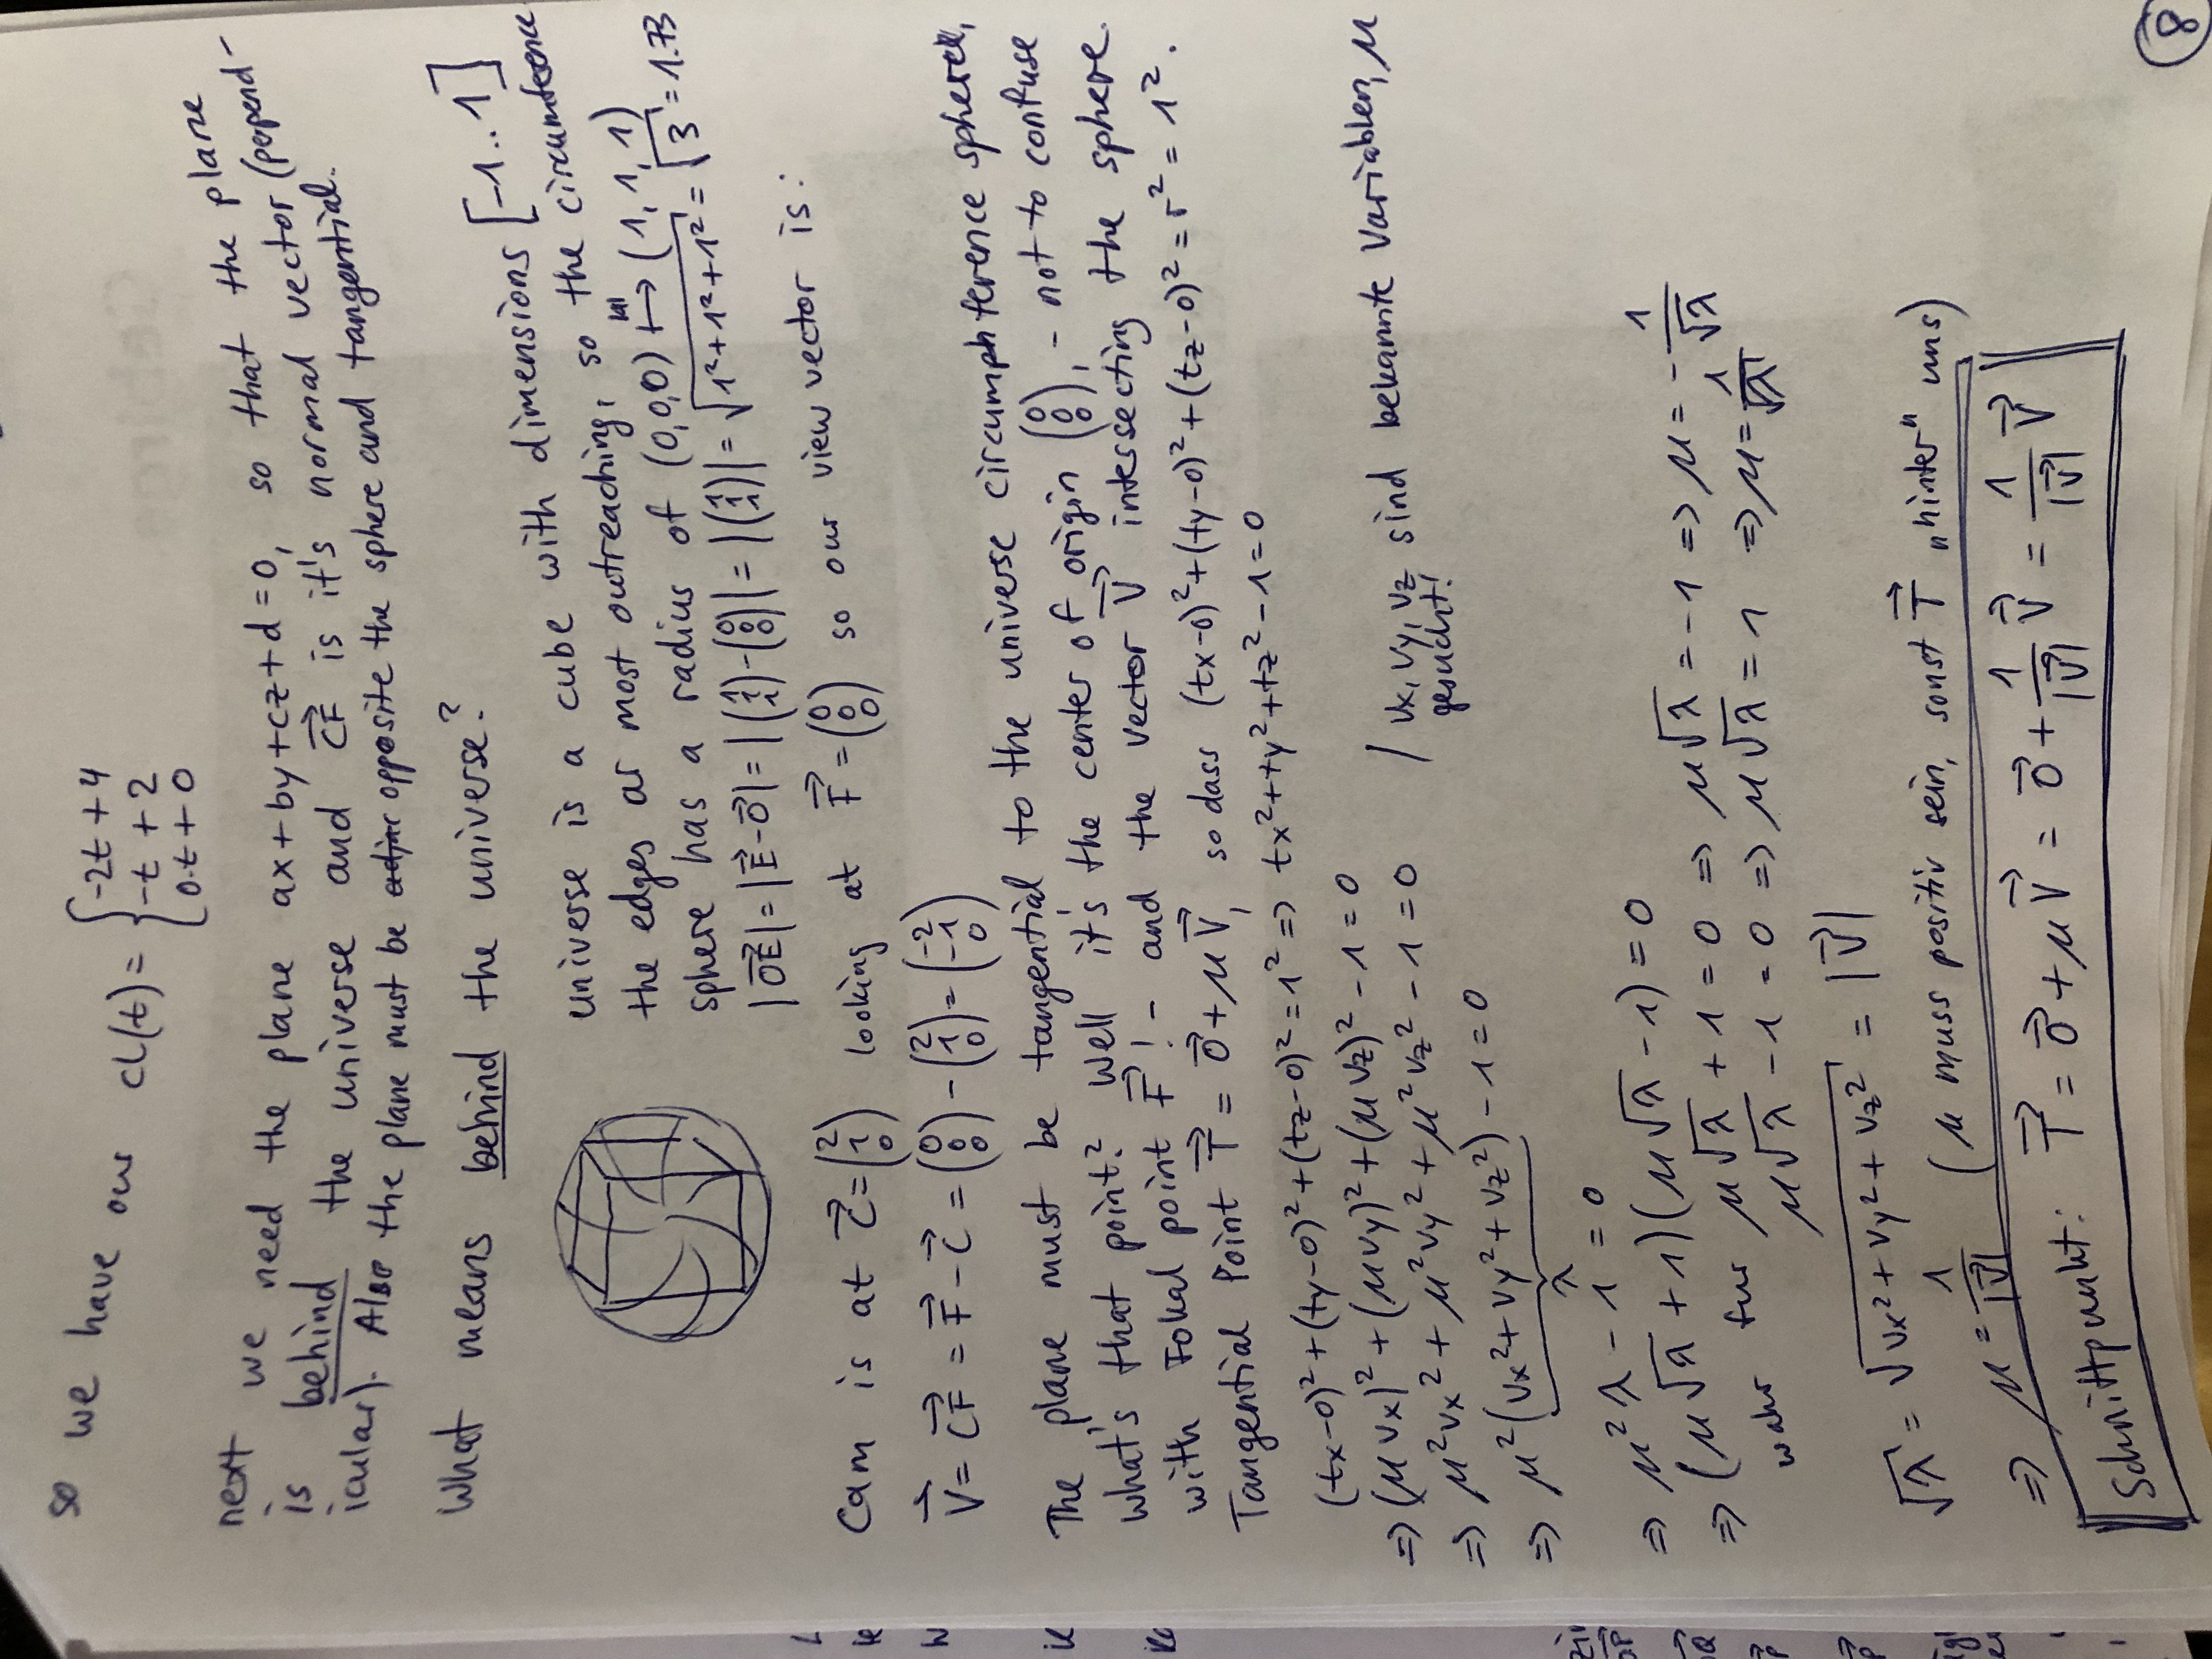 so we have our cl(t) = { -2t + 4
-t + 2
0·t + 0
next we need the plane ax+by+cz+d=0, so that the plane
is behind the universe and CF⃗ is it's normal vector (perpend-
icular). Also the plane must be opposite the sphere and tangential.
What means behind the universe?
universe is a cube with dimensions [-1..1]
the edges ar most outreaching, so the circumference
sphere has a radius of (0,0,0) ↦ (1,1,1)
|OE⃗| = |E⃗-O⃗| = |(1 1 1)-(0 0 0)| = |(1 1 1)| = √(1²+1²+1²) = √3 = 1.73
Cam is at C⃗=(2 1 0) looking at F⃗=(0 0 0) so our view vector is:
V⃗ = CF⃗ = F⃗-C⃗ = (0 0 0) - (2 1 0) = (-2 -1 0)
The plane must be tangential to the universe circumphference sphere,
what's that point? Well it's the center of origin (0 0 0), - not to confuse
with Fokal point F⃗! - and the vector V⃗ intersecting the sphere.
Tangential Point T⃗ = O⃗+μV⃗, so dass (tx-0)²+(ty-0)²+(tz-0)² = r² = 1².
(tx-0)²+(ty-0)²+(tz-0)² = 1² => tx²+ty²+tz²-1=0
=> (μvx)²+(μvy)²+(μvz)² -1 = 0
=> μ²vx² + μ²vy² + μ²vz² - 1 = 0 / vx, vy, vz sind bekannte Variablen, μ
gesucht!
=> μ²(vx²+vy²+vz²) - 1 = 0
λ
=> μ²λ - 1 = 0
=> (μ√λ + 1)(μ√λ - 1) = 0
wahr fur μ√λ + 1 = 0 => μ√λ = -1 => μ = -1/√λ
μ√λ - 1 = 0 => μ√λ = 1 => μ = 1/√λ
√λ = √(vx²+vy²+vz²) = |V⃗|
=> μ = 1/|V⃗| (μ muss positiv sein, sonst T⃗ „hinter" uns)
Schnittpunkt: T⃗ = O⃗+μV⃗ = O⃗ + 1/|V⃗| V⃗ = 1/|V⃗| V⃗
8